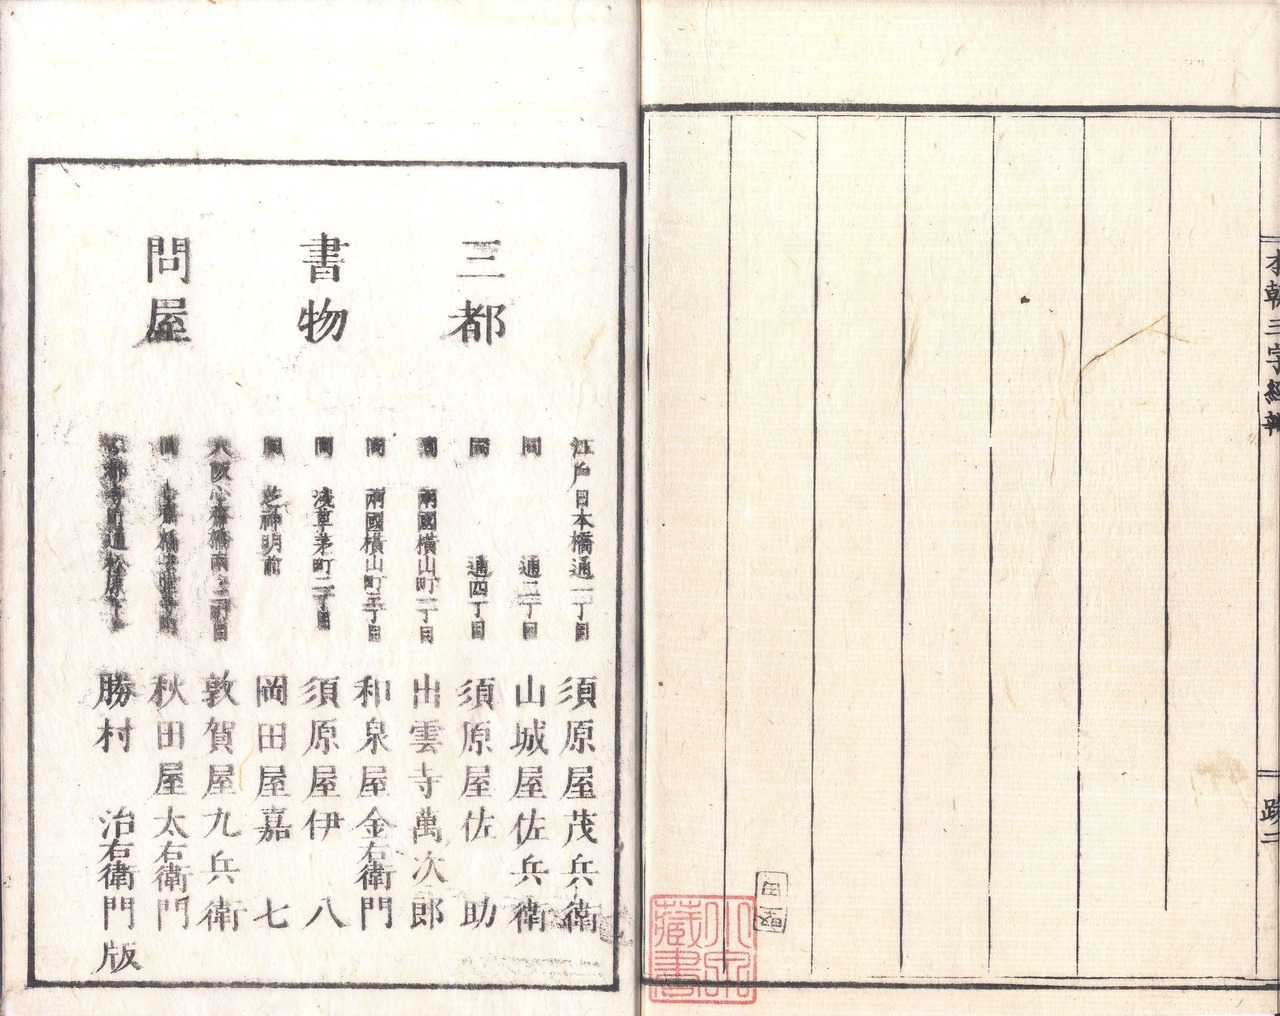 本朝三字經
跋二
三都
書物
問屋
江戸日本橋通一丁目 須原屋茂兵衛
同 通二丁目 山城屋佐兵衛
同 通四丁目 須原屋佐助
同 兩國橫山町一丁目 出雲寺萬次郎
同 兩國橫山町三丁目 和泉屋金右衛門
同 淺草茅町二丁目 須原屋伊八
同 芝神明前 岡田屋嘉七
大阪心齋橋南 敦賀屋九兵衛
同 秋田屋太右衛門
通松原下 勝村治右衛門版
藏書